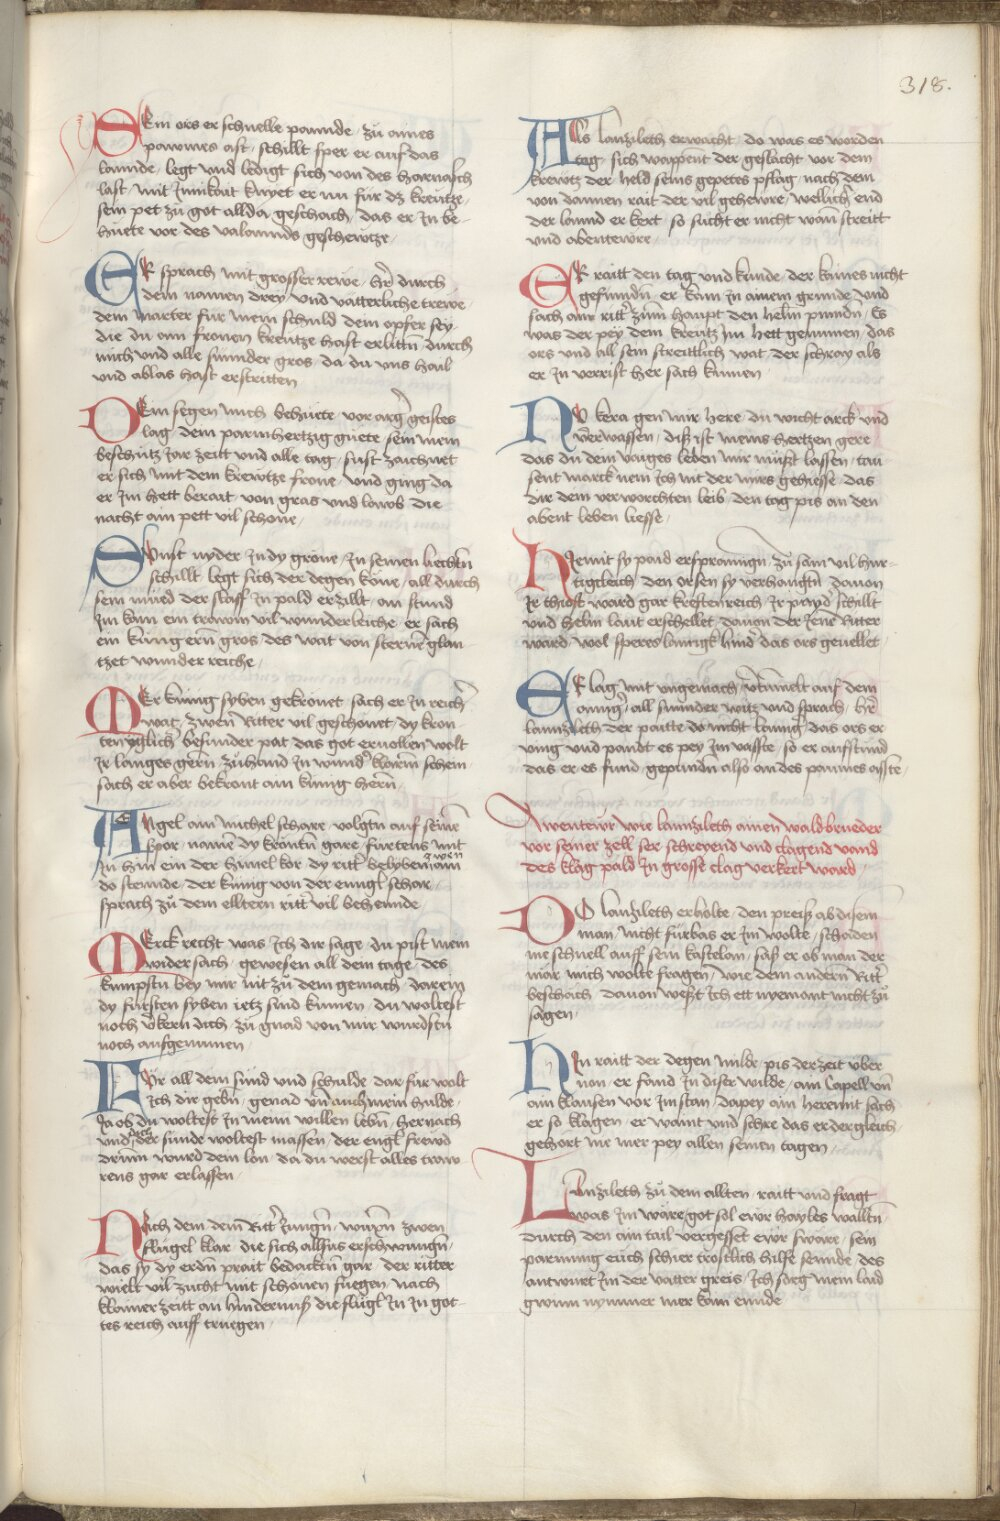 318.
SEin ors er schnelle paunde / zu aines
pawmes ast / schillt sper er auf das
launde / legt und ledigt sich von des harnasch
last / mit ynnikait knyet er nu für dz kreutze /
sein pet zu got allda geschach / das er in be-
huete vor des valannds gescheutze /
ER sprach mit grosser rewe / hr̄ durch
dein namen drey / und vatterliche trewe
dein marter für mein schuld dem opfer sey /
die du am fronen kreutze hast erlittn̄ / durch
mich und alle sunnder gros / da du uns hail
und ablas hast erstritten
DEin segen mich behüete / vor arḡ geistes
lag / dein parmhertzig güete / sein mein
beschutz jar zeitt und alle tag / sust zaichnet
er sich mit dem kreutze frone / und ging da
er im hett berait / von gras und lawb die
nacht ain pett vil schone /
SUnst nyder in dy grone / in seinen liechtn̄
schillt / legt sich der degen kone / all durch
sein müed der slaff in pald erzillt / an stund
im kam ein trawm vil wunderleiche / er sach
ein kunig ern̄ gros des wat von stern̄ glan
tzet wunder reiche /
DEr kunig syben gekronet / sach er in reich̄
wat / zwen Ritter vil geschonet / dy kron-
ten yglich̄ besunder pat das got eruollen wolt
ir langes gern̄ / zuhand in wund̄ klarm schein
sach er aber bekront ain kunig hern̄ /
ANgel ain michel schare / volgtn̄ auf seine
spor / namē dy krontn̄ gare / fürtens mit
in hin ein der himel kor / dy ritt̄ belyben
do stennde / der kunig von der enngl schar /
sprach zu dem elltern ritt̄ vil behennde
MErck recht was ich dir sage / du pist mein
widersach / gewesen all dein tage / des
kumpstu bey mir nit zu dem gemach / darein
dy fürsten syben ietz sind kumen / du woltest
noch v̄kern dich / zu gnad von mir wurdstu
noch aufgenumen /
FÜr all dein sünd und schulde / dar für wolt
ich dir gebn̄ / genad un̄ auch mein hulde /
Ja ob du woltest in meim willen lebn̄ / hernach
und dich der sünde woltest massen / der engl frewd
drumb wurd dein lon / da du werst alles traw
rens gar erlassen /
NAch dem dem Ritt̄ Jungn̄ / wurn̄ zwen
flügel klar / die sich allsus erschwungn̄ /
das sy dy erdn̄ prait bedacktn̄ gar / der ritter
wielt vil zucht mit schonen fuegen / nach
klainer zeitt an hindernuß die flügl in in got-
tes reich auff truegen /
ALs lanzileth erwacht / do was es worden
tag / sich wappent der geslacht / vor dem
krewtz der held seins gepetes pflag / nach dem
von dannen rait der vil gehewre / wellich end
der lannd er kert / so sucht er nicht wann streitt
und abentewre /
ER raitt den tag und kunde / der kaines nicht
gefundn̄ / er kam in ainem grunde / und
sach ain ritt̄ zum haupt den helm pundn̄ / Es
was der pey dem kreutz im hett genumen / das
ors und all sein streittlich wat / der schray als
er in verrist her sach kumen /
NU kera gen mir here / du wicht arck und
verwassen / diß ist meins hertzen gere
das du dein vaiges leben mir müst lassen / tau-
sent marck nem ich nit der mirs gehiesse / das
dir dein verworchten leib / den tag pis an den
abent leben liesse /
HIemit sy paid ersprangn̄ / zu sam vil hur-
tigleich / den orsen sy verhangtn̄ / dauon
ir thiost ward gar kreftenreich / ir payd̄ schillt
und helm laut erschellet / dauon der iene Ritter
ward / wol speres lanngk hind̄ das ors geuellet /
ER lag mit ungemach / v̄tumelt auf dem
annḡ / all sunnder witz und sprach / hr̄
lannzileth der paitte do nicht lannḡ / das ors er
ving und pandt es pey im vaste / so er aufstund
das er es fund / gepundn̄ also an des paumes asste /
Awenteur wie lannzileth ainen waldbrueder
vor seiner zell ser schreyend und clagend vand
des klag pald in grosse clag verkert ward /
DO lanzileth erholte / den preiß ab disem
man / nicht fürbas er im wolte / schaden
me schnell auff sein kastelan / saß er ob man der
mär mich wolte fragen / wie dem andern Ritt̄
beschach / dauon weßt ich ett nyemant nicht zu
sagen /
HIn raitt der degen milde / pis der zeit über
non / er fand in diser wilde / ain Capell un̄
ain klausen vor im stan / dapey ain heremit sach
er so klagen / er waint und schre das er der gleich
gehort nie mer pey allen seinen tagen /
LAnnzileth zu dem allten / raitt und fragt
was im wäre / got sol ewr hayles walltn̄
durch den ain tail vergesset ewr swäre / sein
parmung euch schier trostlich hilfe sennde / des
antwurt im der vatter greis / ich sorg mein laid
gwinn nymmer mer kain ennde